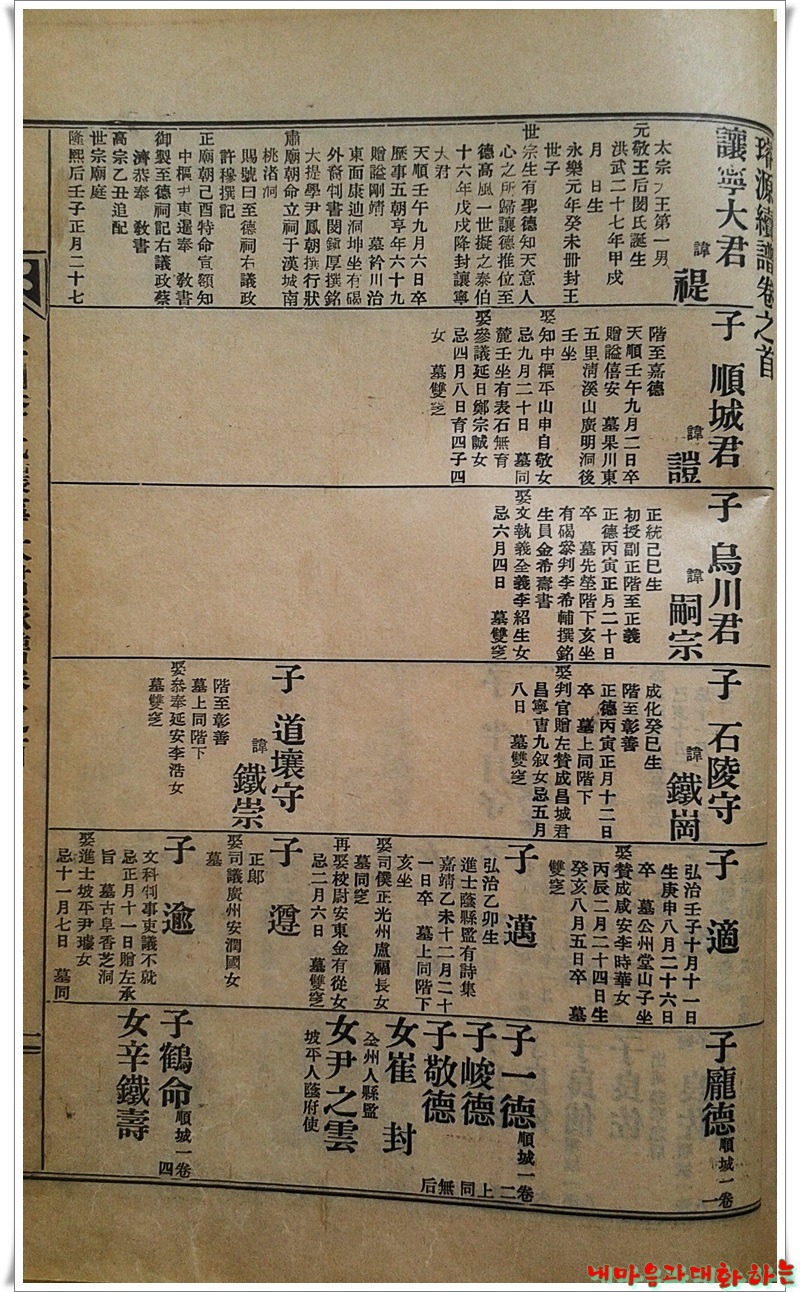 璿源續譜卷之首
讓寧大君
諱 禔
太宗大王第一男
元敬王后閔氏誕生
洪武二十七年甲戌
月 日生
永樂元年癸未冊封王
世子
世宗生有聖德知天意人
心之所歸讓德推位至
德高風一世擬之泰伯
十六年戊戌降封讓寧
大君
天順壬午九月六日卒
歷事五朝享年六十九
贈諡剛靖 墓衿川治
東面康迪洞坤坐有碣
外裔判書閔鎭厚撰銘
大提學尹鳳朝撰行狀
肅廟朝命立祠于漢城南
桃渚洞
賜號曰至德祠右議政
許穆撰記
正廟朝己酉特命宣額知
中樞尹東暹奉 敎書
御製至德祠記右議政蔡
濟恭奉 敎書
高宗乙丑追配
世宗廟庭
隆熙后壬子正月二十七
子 順城君
諱 䛪
階至嘉德
天順壬午九月二日卒
贈諡僖安 墓果川東
五里淸溪山廣明洞後
壬坐
娶知中樞平山申自敬女
忌九月二十日 墓同
麓壬坐有表石無育
娶參議延日鄭宗誠女
忌四月八日育四子四
女 墓雙窆
子 烏川君
諱 嗣宗
正統己巳生
初授副正階至正義
正德丙寅正月二十日
卒 墓先塋階下亥坐
有碣參判李希輔撰銘
生員金希壽書
娶文執義全義李紹生女
忌六月四日 墓雙窆
子 石陵守
諱 鐵崗
成化癸巳生
階至彰善
正德丙寅正月十二日
卒 墓上同階下
娶判官贈左贊成昌城君
昌寧曺九叙女忌五月
八日 墓雙窆
子 道壤守
諱 鐵崇
階至彰善
墓上同階下
娶叅奉延安李浩女
墓雙窆
子 適
弘治壬子十月十一日
生庚申八月二十六日
卒 墓公州堂山子坐
娶贊成咸安李時華女
丙辰二月二十四日生
癸亥八月五日卒 墓
雙窆
子 邁
弘治乙卯生
進士蔭縣監有詩集
嘉靖乙未十二月二十
一日卒 墓上同階下
亥坐
娶司僕正光州盧福長女
墓同窆
再娶校尉安東金有從女
忌二月六日 墓雙窆
子 遵
正郎
娶司議廣州安潤國女
墓
子 逾
文科判事吏議不就
忌正月十一日贈左承
旨 墓古阜香芝洞
娶進士坡平尹璩女
忌十一月七日 墓同
子龐德 順城一卷一
子一德 順城一卷二
子峻德 上同
子敬德 無后
女崔 封
全州人縣監
女尹之雲
坡平人蔭府使
子鶴命 順城一卷四
女辛鐵壽
내마음과대화하는